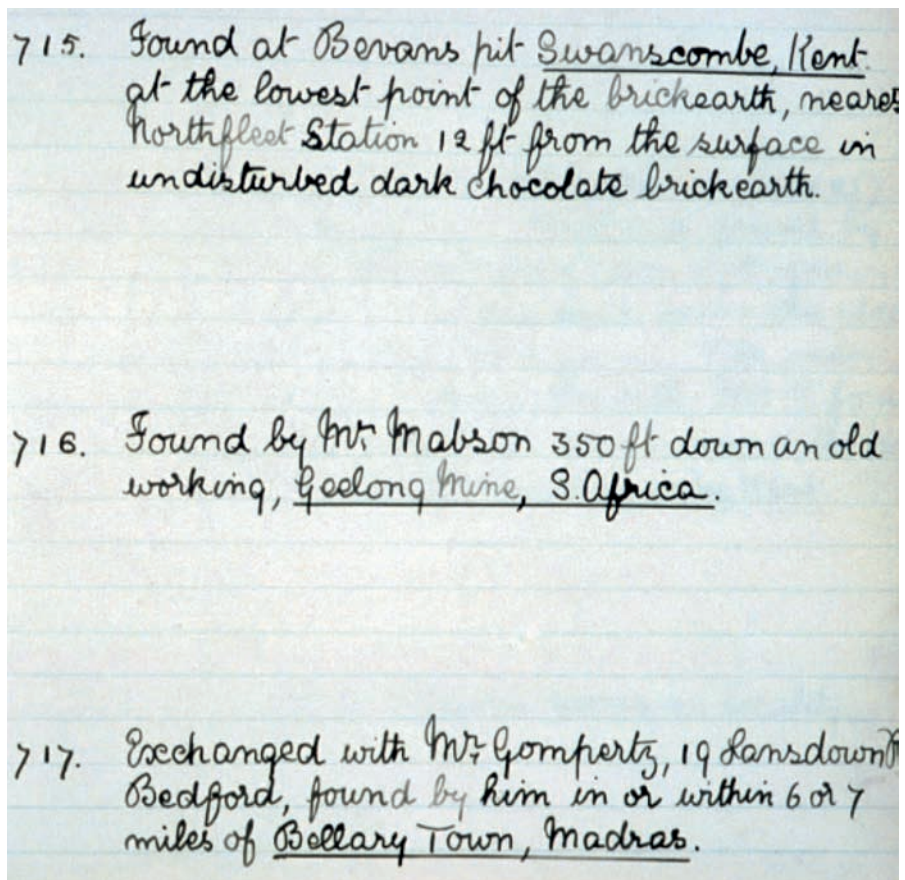 715. Found at Bevans pit Swanscombe, Kent.
at the lowest point of the brickearth, neares
Northfleet Station 12 ft from the surface in
undisturbed dark chocolate brickearth.
716. Found by Mr Mabson 350 ft down an old
working, Geelong Mine, S. Africa.
717. Exchanged with Mr Gompertz, 19 Lansdown
Bedford, found by him in or within 6 or 7
miles of Bellary Town, Madras.